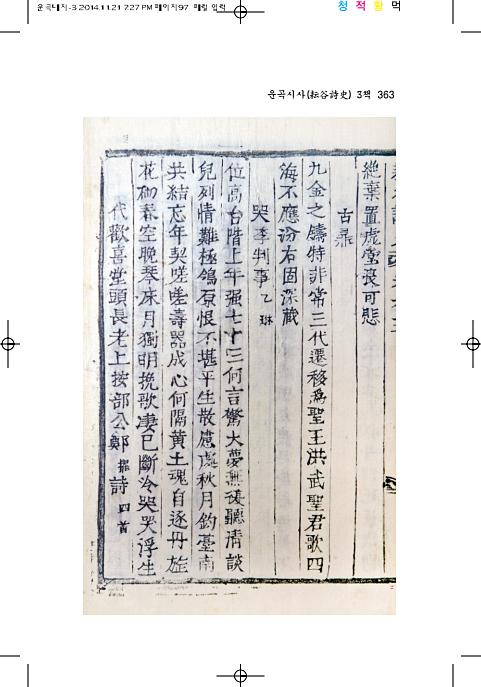 운곡내지-3 2014.11.21 7:27 PM 페이지97 매월 입력
청 적 황 먹
운곡시사(耘谷詩史) 3책 363
絶棄置虛堂衰可悲
古鼎
九金之鑄特非常三代遷移爲聖王洪武聖君歌四
海不應汾右固深藏
哭李判事乙琳
位高台階上年强七十三何言驚大夢無復聽淸談
兒列情難極鴒原恨不甚平生散慮處秋月釣臺南
共結忘年契嗟嗟壽器成心何隔黃土魂自逐丹旌
花砌春空晩琴床月獨明挽歌凄已斷冷哭哭浮生
代歡喜堂頭長老上按部公鄭 詩四首